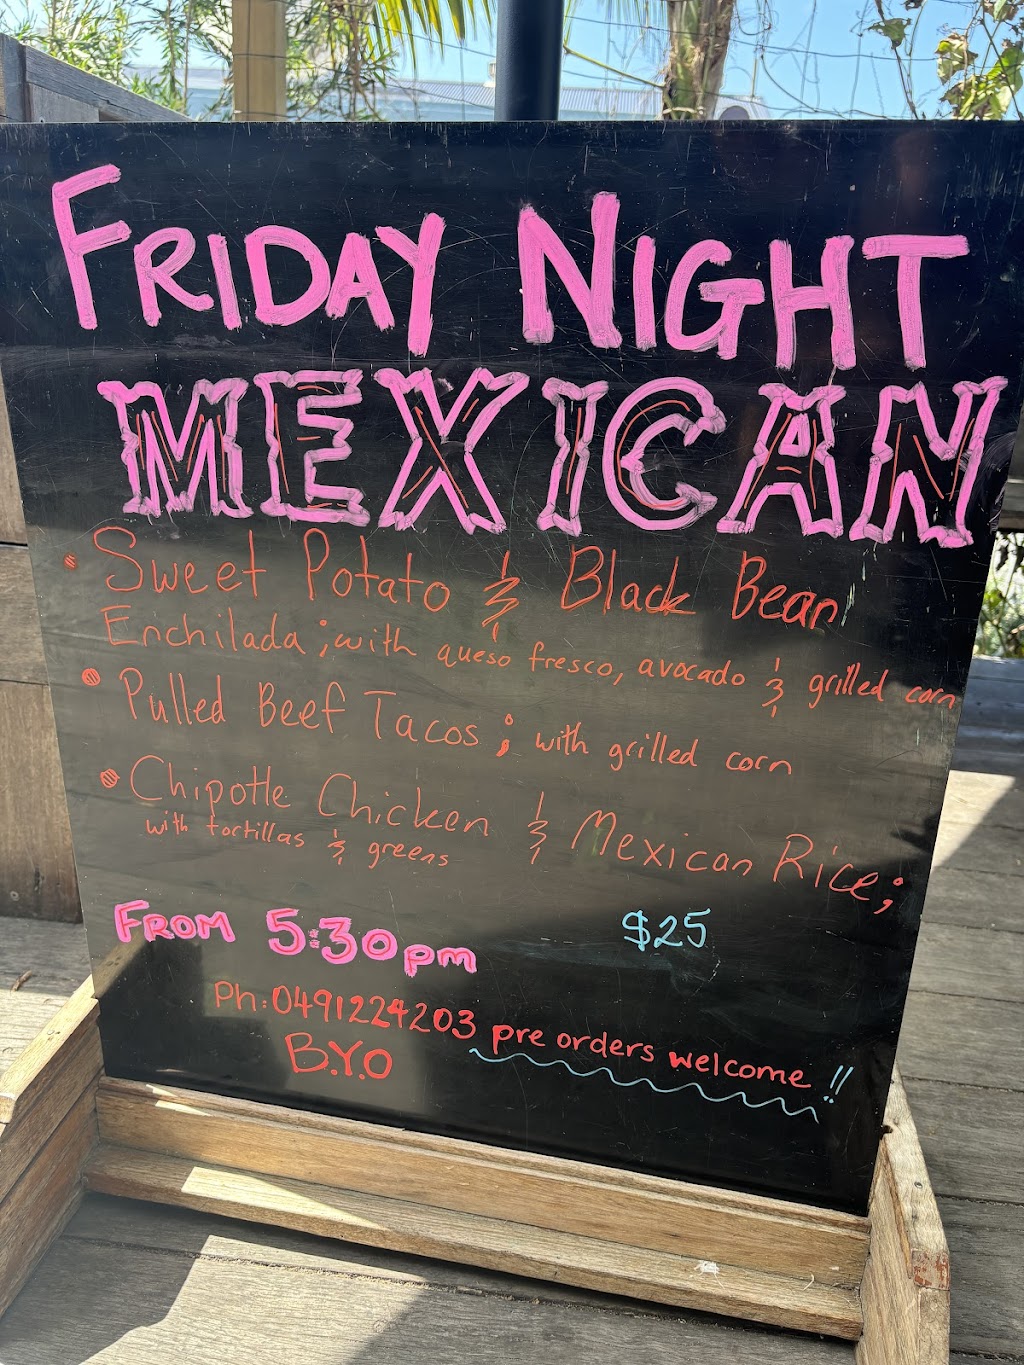 FRIDAY NIGHT
MEXICAN
• Sweet Potato & Black Bean
Enchilada; with queso fresco, avocado & grilled corn
• Pulled Beef Tacos; with grilled corn
• Chipotle Chicken & Mexican Rice;
with tortillas & greens
FROM 5:30pm $25
Ph: 0491224203 pre orders welcome!!
B.Y.O